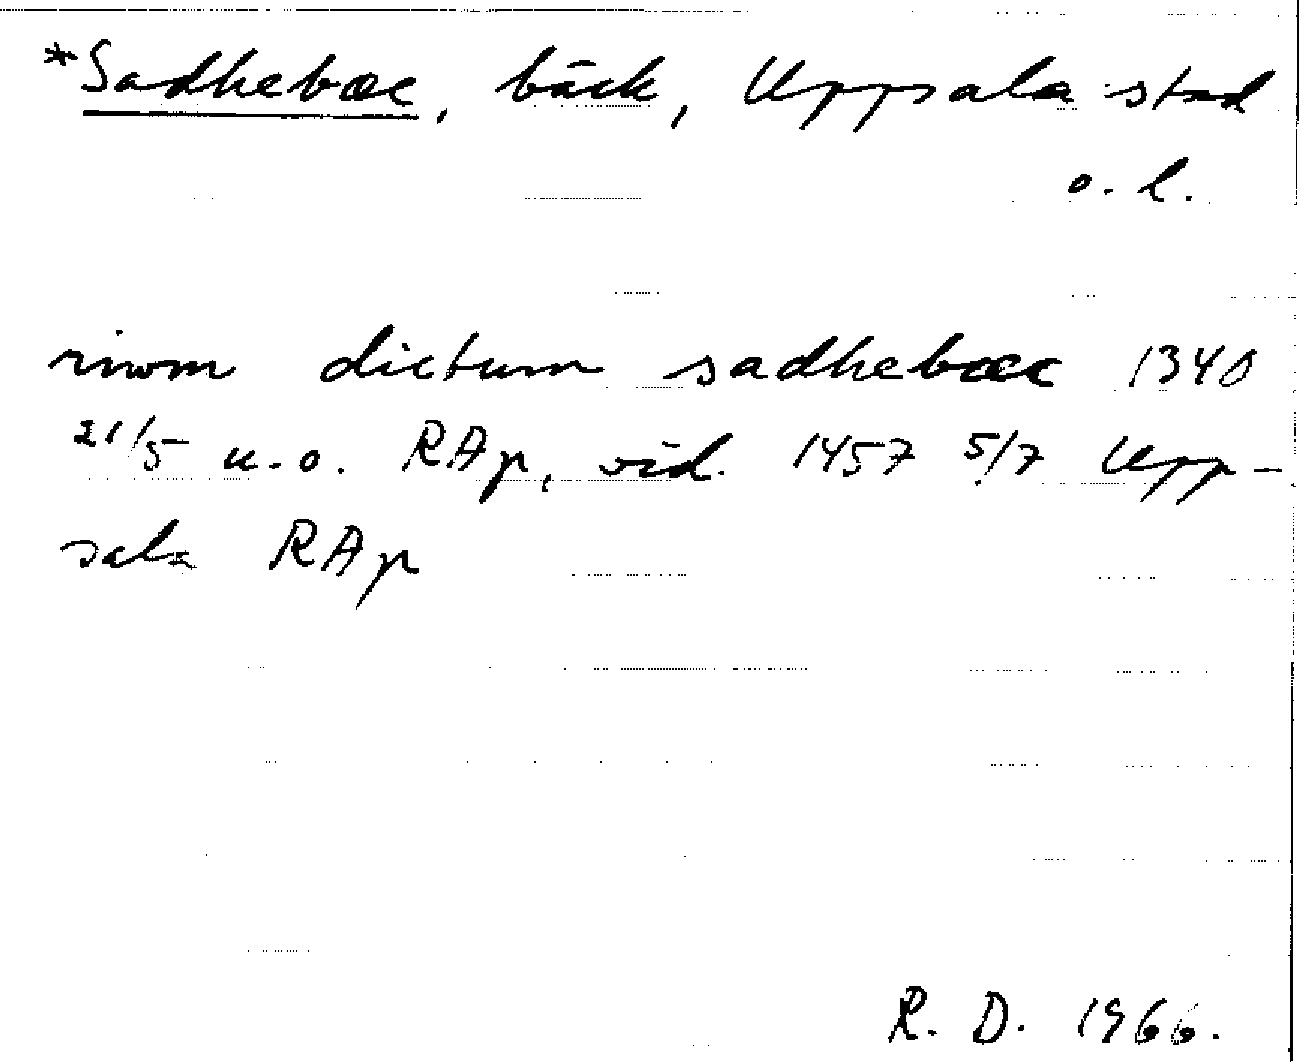 *Sadhebæc, bäck, Uppsala stad
o. l.
rivom dictum sadhebæc 1340
21/5 u.o. RAp, vid. 1457 5/7 Upp-
sala RAp
R. D. 1966.